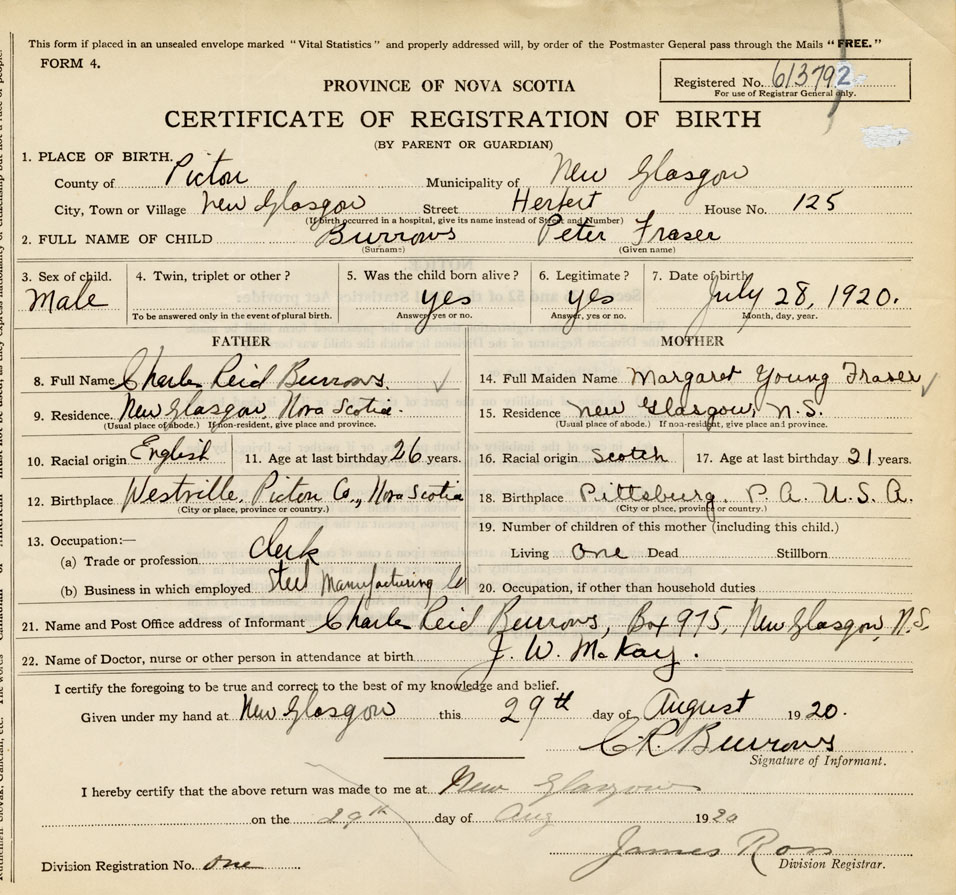 This form if placed in an unsealed envelope marked "Vital Statistics" and properly addressed will, by order of the Postmaster General pass through the Mails "FREE."
FORM 4.
Registered No. 613792
For use of Registrar General only.
PROVINCE OF NOVA SCOTIA
CERTIFICATE OF REGISTRATION OF BIRTH
(BY PARENT OR GUARDIAN)
1. PLACE OF BIRTH.
County of Pictou Municipality of New Glasgow
City, Town or Village New Glasgow Street Herbert House No. 125
(If birth occurred in a hospital, give its name instead of Street and Number)
2. FULL NAME OF CHILD Burrows Peter Fraser
(Surname) (Given name)
3. Sex of child. 4. Twin, triplet or other? 5. Was the child born alive? 6. Legitimate? 7. Date of birth
Male yes yes July 28, 1920.
To be answered only in the event of plural birth. Answer, yes or no. Answer, yes or no. Month, day, year.
FATHER MOTHER
8. Full Name Charles Reid Burrows. 14. Full Maiden Name Margaret Young Fraser
9. Residence. New Glasgow, Nova Scotia. 15. Residence New Glasgow, N.S.
(Usual place of abode.) If non-resident, give place and province. (Usual place of abode.) If non-resident, give place and province.
10. Racial origin English 11. Age at last birthday 26 years. 16. Racial origin Scotch 17. Age at last birthday 21 years.
12. Birthplace Westville, Pictou Co., Nova Scotia 18. Birthplace Pittsburg, P.A. U.S.A.
(City or place, province or country.) (City or place, province or country.)
13. Occupation:— 19. Number of children of this mother (including this child.)
(a) Trade or profession Clerk Living One Dead Stillborn
(b) Business in which employed Steel Manufacturing Co 20. Occupation, if other than household duties
21. Name and Post Office address of Informant Charles Reid Burrows, Box 975, New Glasgow, N.S.
22. Name of Doctor, nurse or other person in attendance at birth J. W. McKay.
I certify the foregoing to be true and correct to the best of my knowledge and belief.
Given under my hand at New Glasgow this 29th day of August 1920.
C.R. Burrows
Signature of Informant.
I hereby certify that the above return was made to me at New Glasgow
on the 29th day of Aug 1920
James Ross
Division Registration No. one Division Registrar.